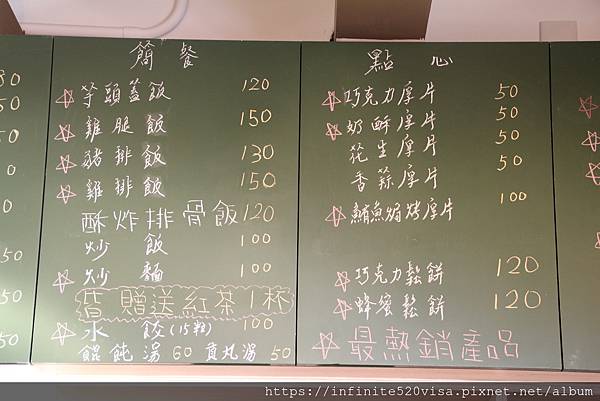 簡餐
☆芋頭蓋飯 120
雞腿飯 150
☆豬排飯 130
☆雞排飯 150
酥炸排骨飯 120
炒飯 100
☆炒麵 100
皆贈送紅茶1杯
☆水餃(15粒) 100
餛飩湯 60 貢丸湯 50
點心
☆巧克力厚片 50
☆奶酥厚片 50
花生厚片 50
香蒜厚片 50
☆鮪魚焗烤厚片 100
☆巧克力鬆餅 120
☆蜂蜜鬆餅 120
☆最熱銷產品
https://infinite520visa.pixnet.net/album